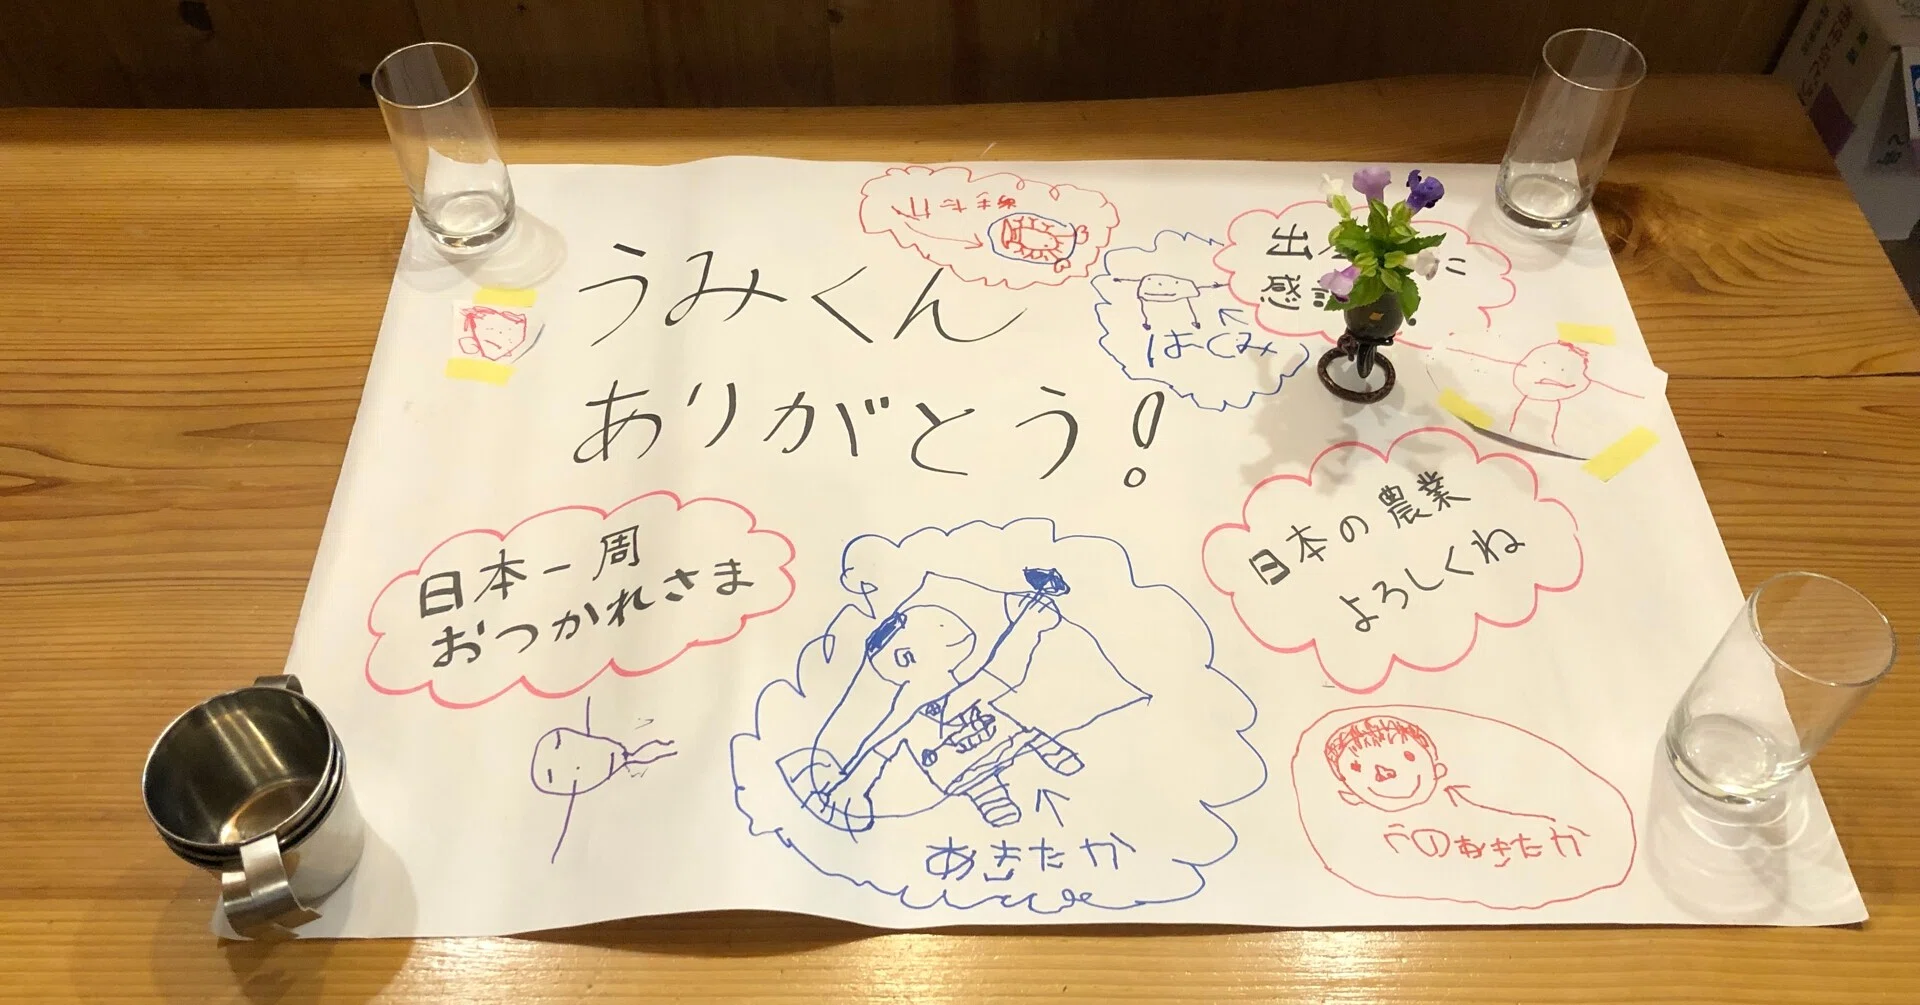 あきたか
うみくん
ありがとう!
出
に
感
はぐみ
日本一周
おつかれさま
日本の農業
よろしくね
あきたか
うのあきたか